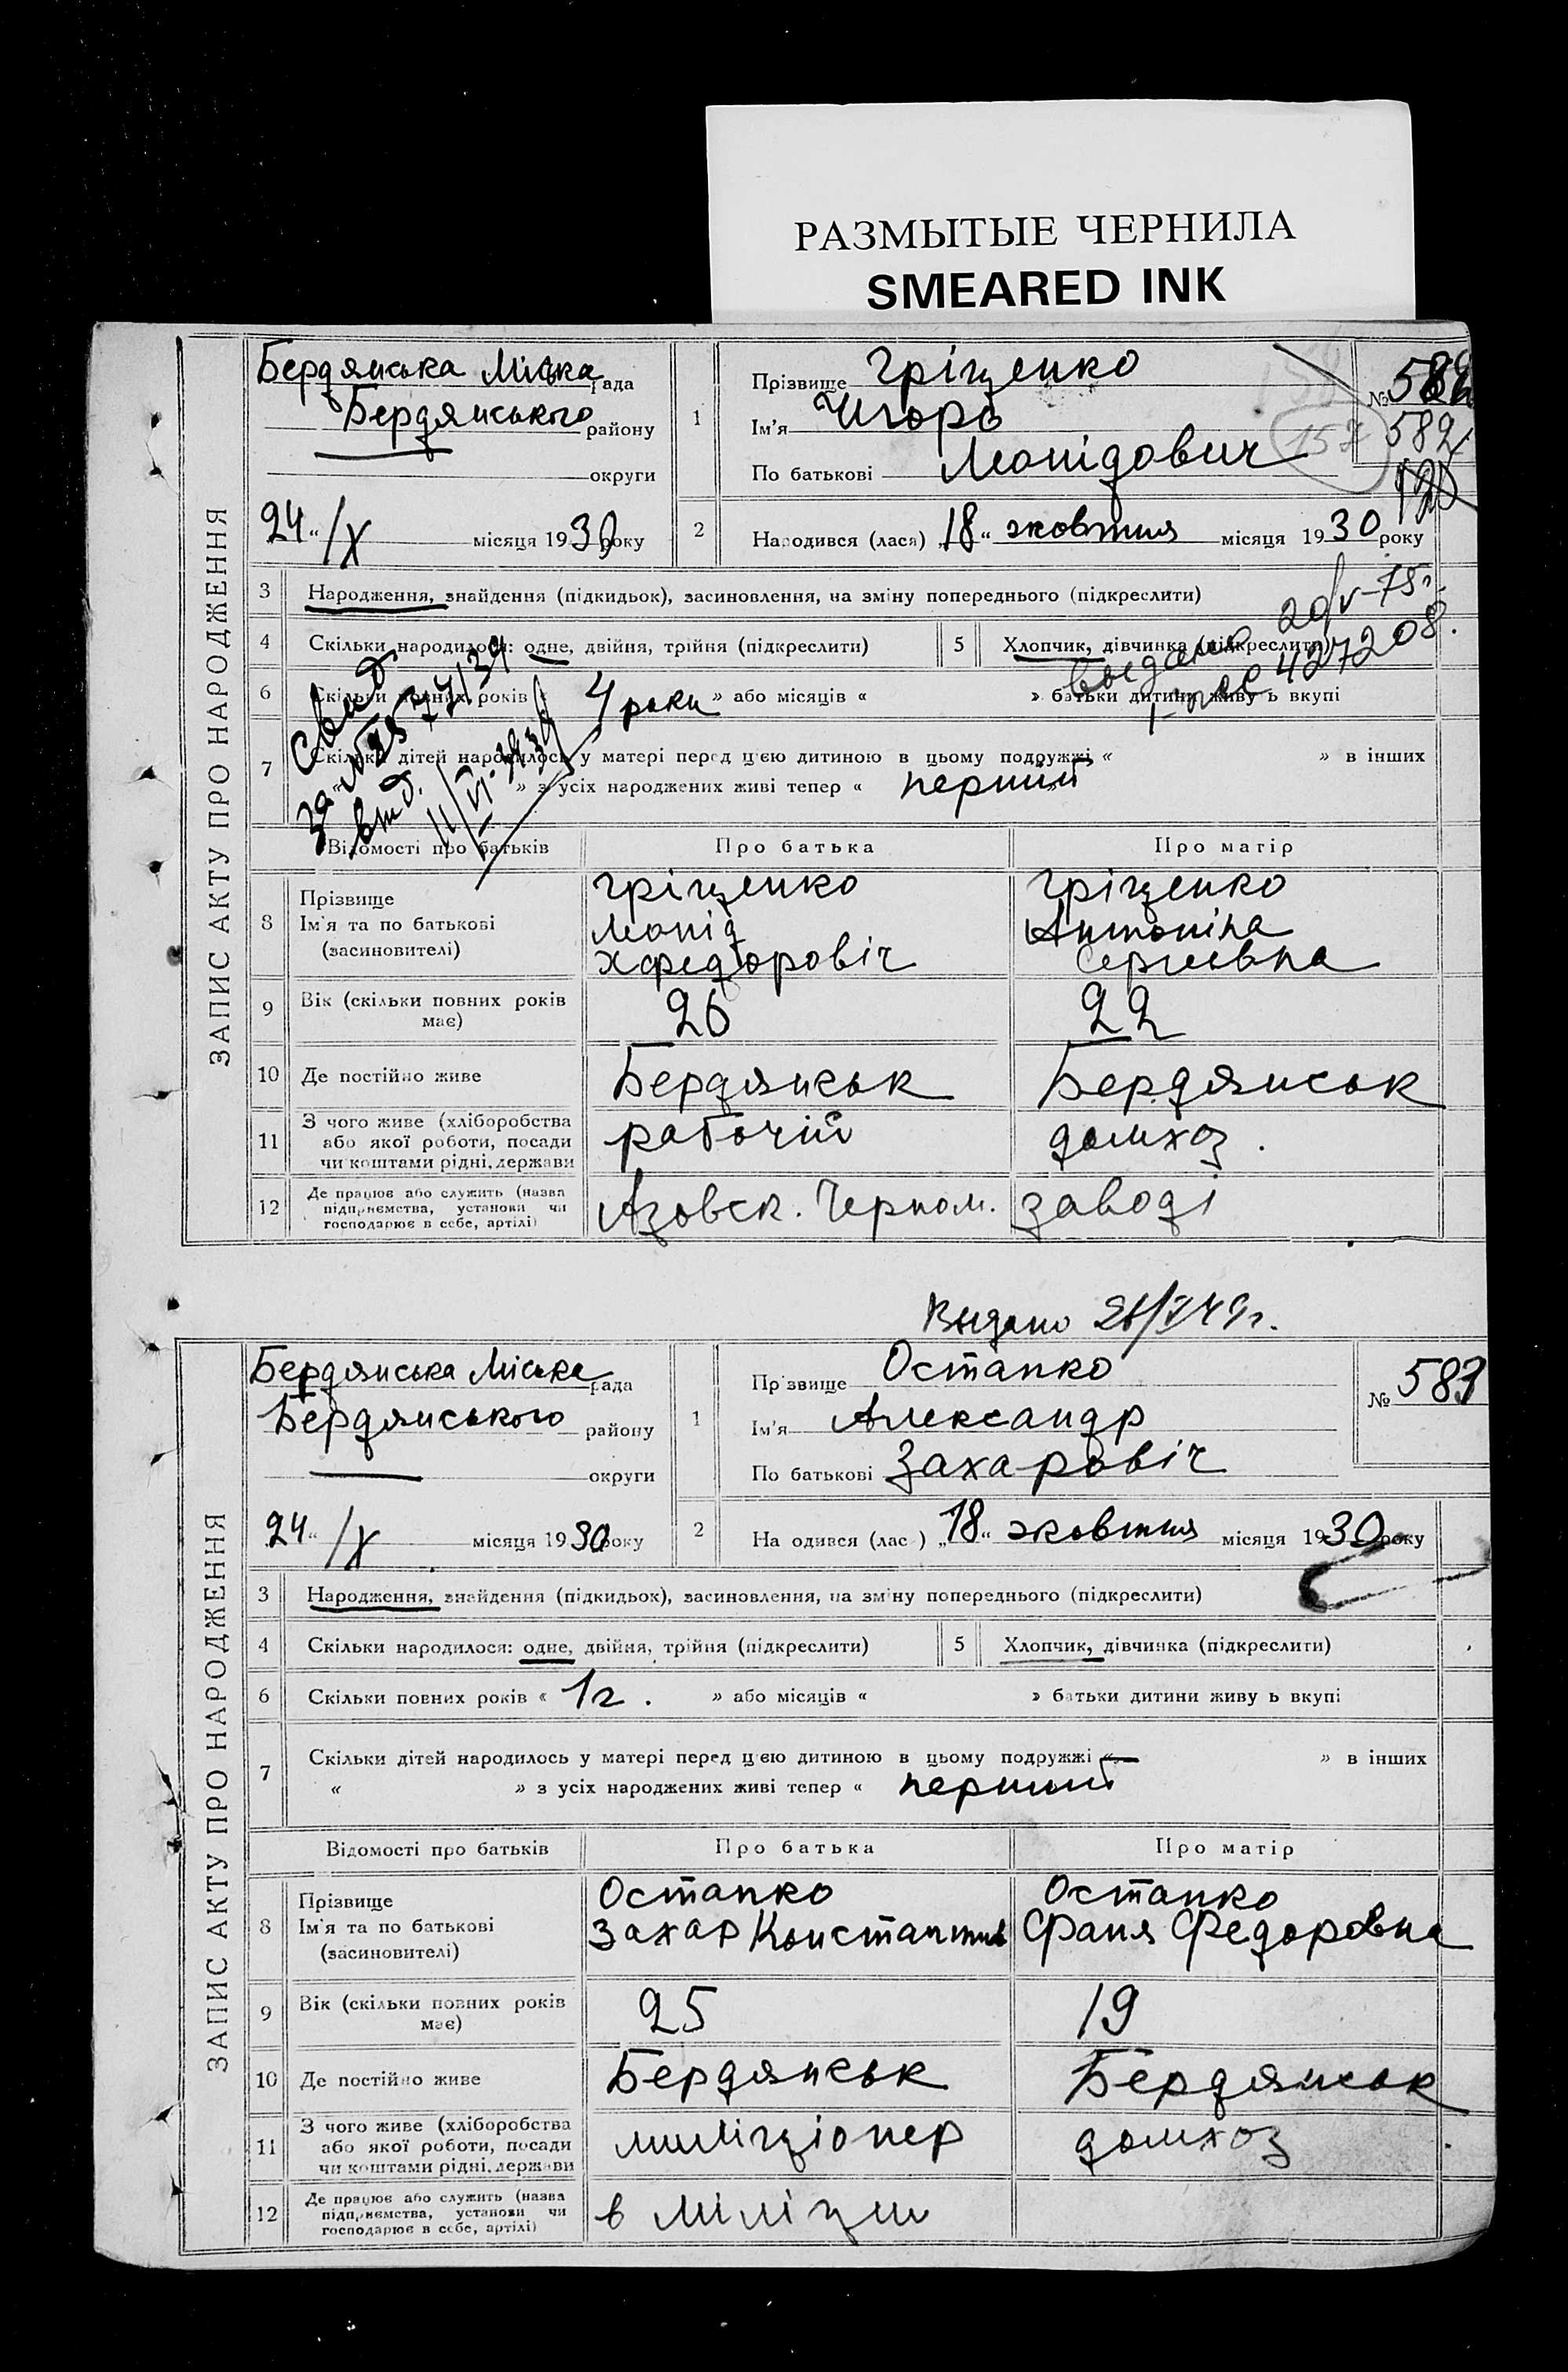 РАЗМЫТЫЕ ЧЕРНИЛА
SMEARED INK
ЗАПИС АКТУ ПРО НАРОДЖЕННЯ
Бердянська Міська рада
Бердянського району
округи
24 “ /X місяця 1930 року
1
Прізвище Гріценко
Ім'я Игорь
По батькові Леонідович
№
582
157
2
Народився (лася) „18“ жовтня місяця 1930 року
3 Народження, знайдення (підкидьок), засиновлення, на зміну попереднього (підкреслити)
4 Скільки народилося: одне, двійня, трійня (підкреслити)
5 Хлопчик, дівчинка (підкреслити)
6 Скільки повних років « 4 роки » або місяців « » батьки дитини живу ь вкупі
7 Скільки дітей народилось у матері перед цією дитиною в цьому подружжі « » в інших
» з усіх народжених живі тепер « перший
Відомості про батьків Про батька Про матір
8 Прізвище Гріценко Гріценко
Ім'я та по батькові Леонід Антоніна
(засиновителі) Хфедоровіч Сергеевна
9 Вік (скільки повних років має) 26 22
10 Де постійно живе Бердянськ Бердянськ
11 З чого живе (хліборобства або якої роботи, посади чи коштами рідні, держави рабочій домхоз.
12 Де працює або служить (назва підприємства, установи чи господарює в себе, артілі) Азовск. Черном. заводі
Выдано
ЗАПИС АКТУ ПРО НАРОДЖЕННЯ
Бердянська Міська рада
Бердянського району
округи
24 “ /X місяця 1930 року
1
Пр звище Остапко
Ім'я Александр
По батькові Захаровіч
№ 583
2
На одився (лас ) „18“ жовтня місяця 1930 року
3 Народження, знайдення (підкидьок), засиновлення, на зміну попереднього (підкреслити)
4 Скільки народилося: одне, двійня, трійня (підкреслити)
5 Хлопчик, дівчинка (підкреслити)
6 Скільки повних років « 1 г. » або місяців « » батьки дитини живу ь вкупі
7 Скільки дітей народилось у матері перед цією дитиною в цьому подружжі « — » в інших
« » з усіх народжених живі тепер « перший
Відомості про батьків Про батька Про матір
8 Прізвище Остапко Остапко
Ім'я та по батькові Захар Константин Фаня Федоровна
(засиновителі)
9 Вік (скільки повних років має) 25 19
10 Де постійно живе Бердянськ Бердянськ
11 З чого живе (хліборобства або якої роботи, посади чи коштами рідні, держави миліціонер домхоз
12 Де працює або служить (назва підприємства, установи чи господарює в себе, артілі) в міліции